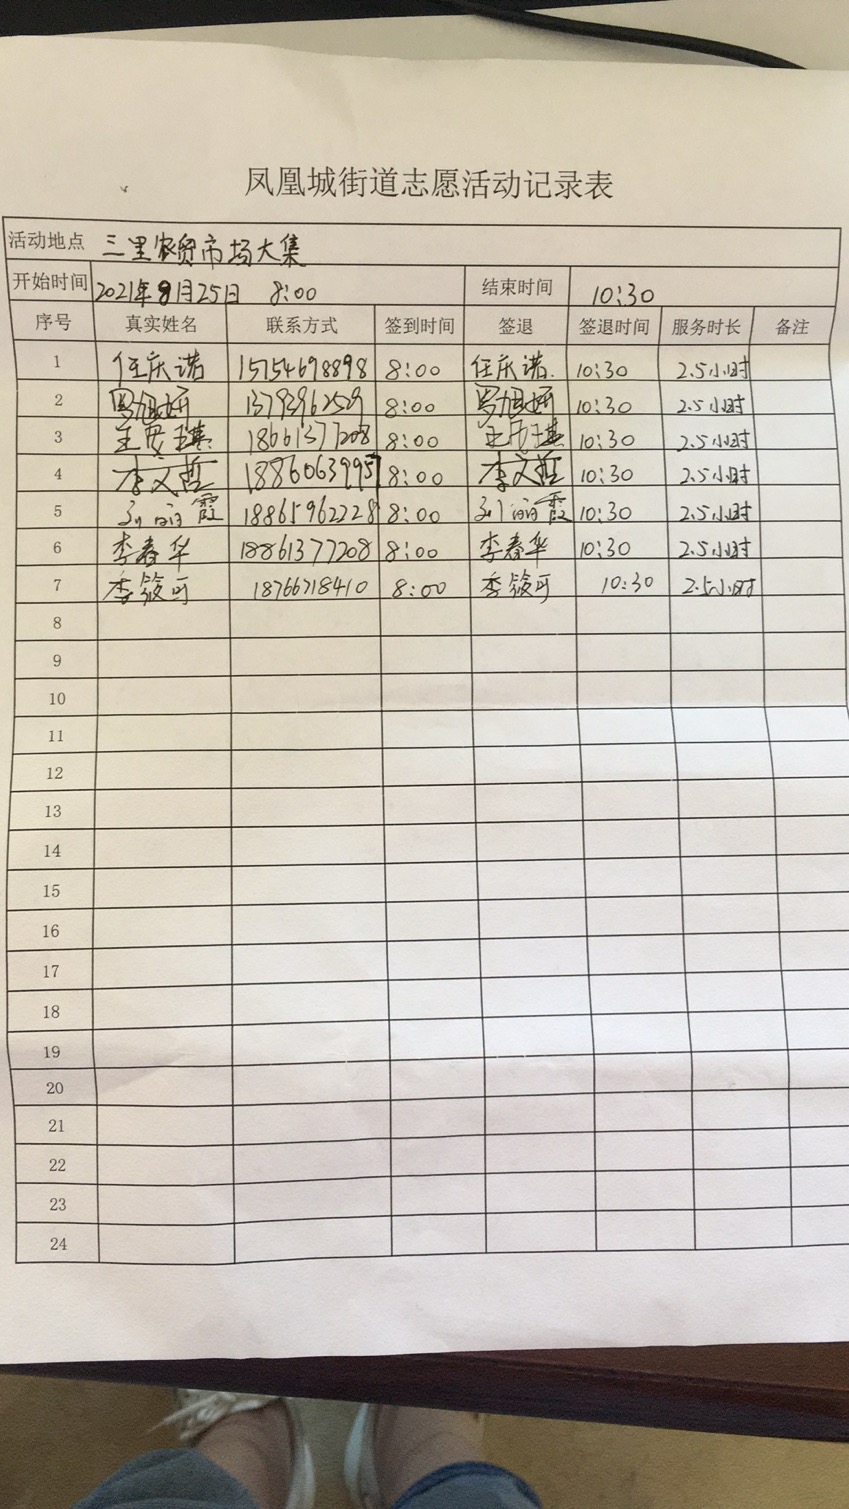 凤凰城街道志愿活动记录表
活动地点 三里农贸市场大集
开始时间 2021年8月25日 8:00 结束时间 10:30
序号 真实姓名 联系方式 签到时间 签退 签退时间 服务时长 备注
1 任庆诺 15754698898 8:00 任庆诺. 10:30 2.5小时
2 罗旭妍 13793962529 8:00 罗旭妍 10:30 2.5小时
3 18661377208 8:00 10:30 2.5小时
4 李文哲 18860639957 8:00 李文哲 10:30 2.5小时
5 刘丽霞 18865962228 8:00 刘丽霞 10:30 2.5小时
6 李春华 18861377208 8:00 李春华 10:30 2.5小时
7 李筱可 18766718410 8:00 李筱可 10:30 2.5小时
8
9
10
11
12
13
14
15
16
17
18
19
20
21
22
23
24